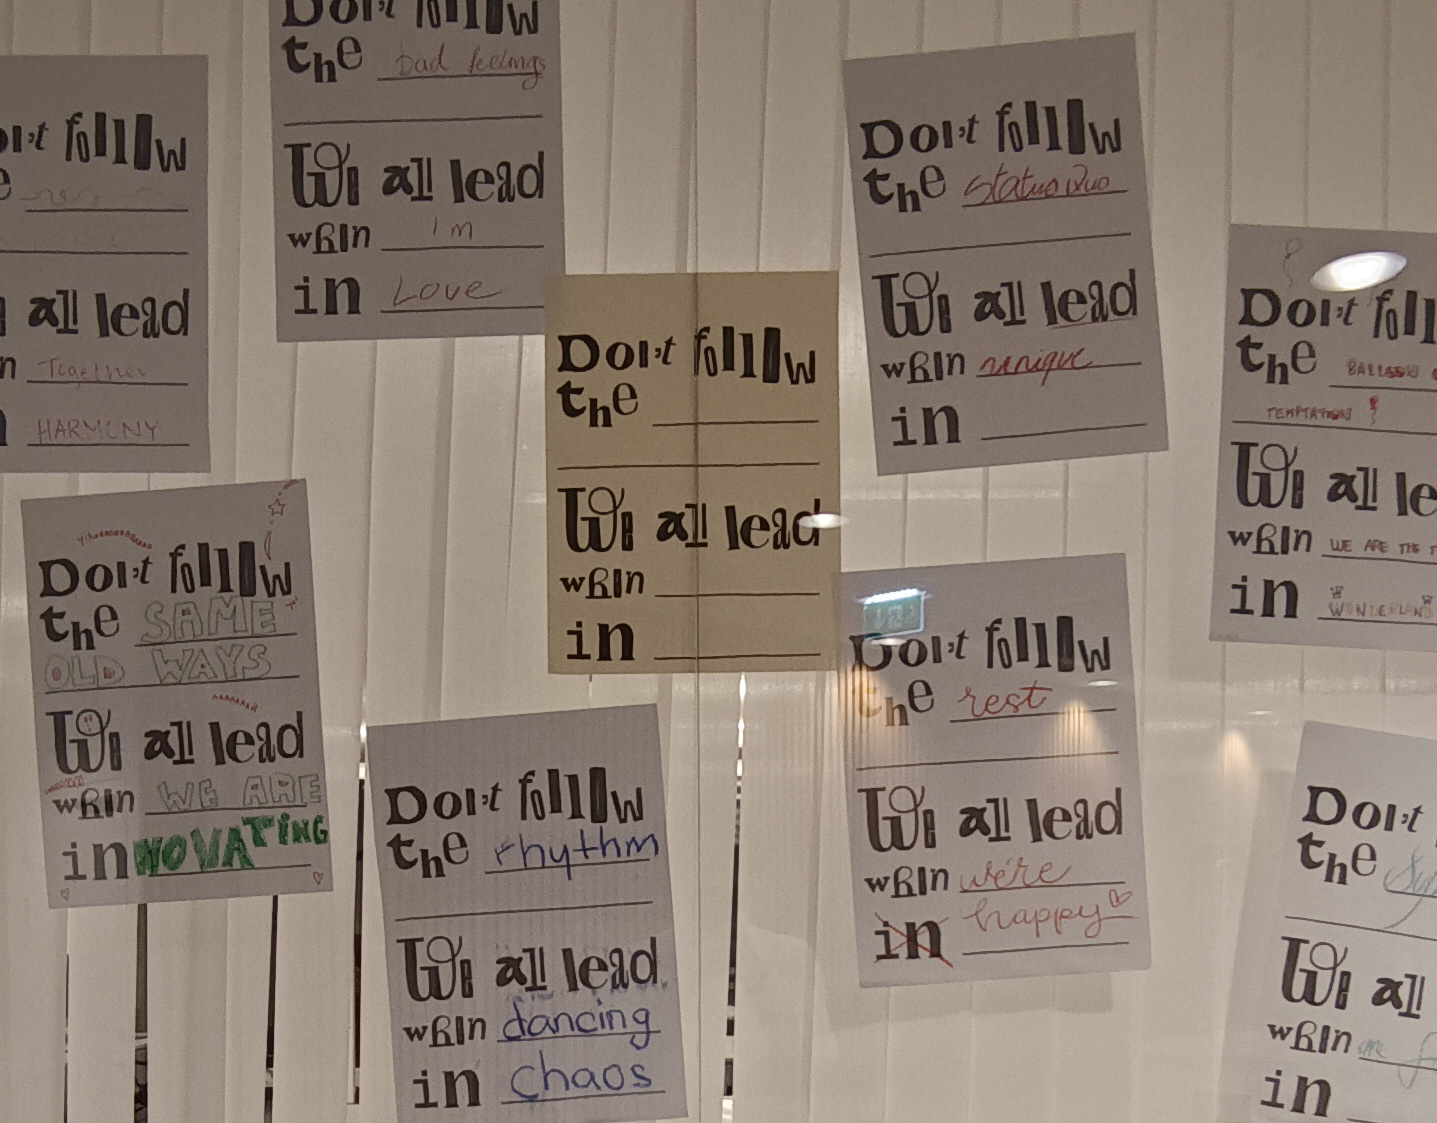 Don't follow
the bad feelings
We all lead
when I'm
in Love
follow
all lead
Together
HARMONY
Don't follow
the Status Quo
We all lead
when unique
in
Don't
the BALLOON
TEMPTATION
We all
when WE ARE THE
in WONDERLAND
Don't follow
the
We all lead
when
in
Don't follow
the SAME
OLD WAYS
We all lead
when WE ARE
inNOVATING
Don't follow
the rest
We all lead
when we're
in happy
Don't follow
the rhythm
We all lead
when dancing
in chaos
Don't
the
We all
when
in